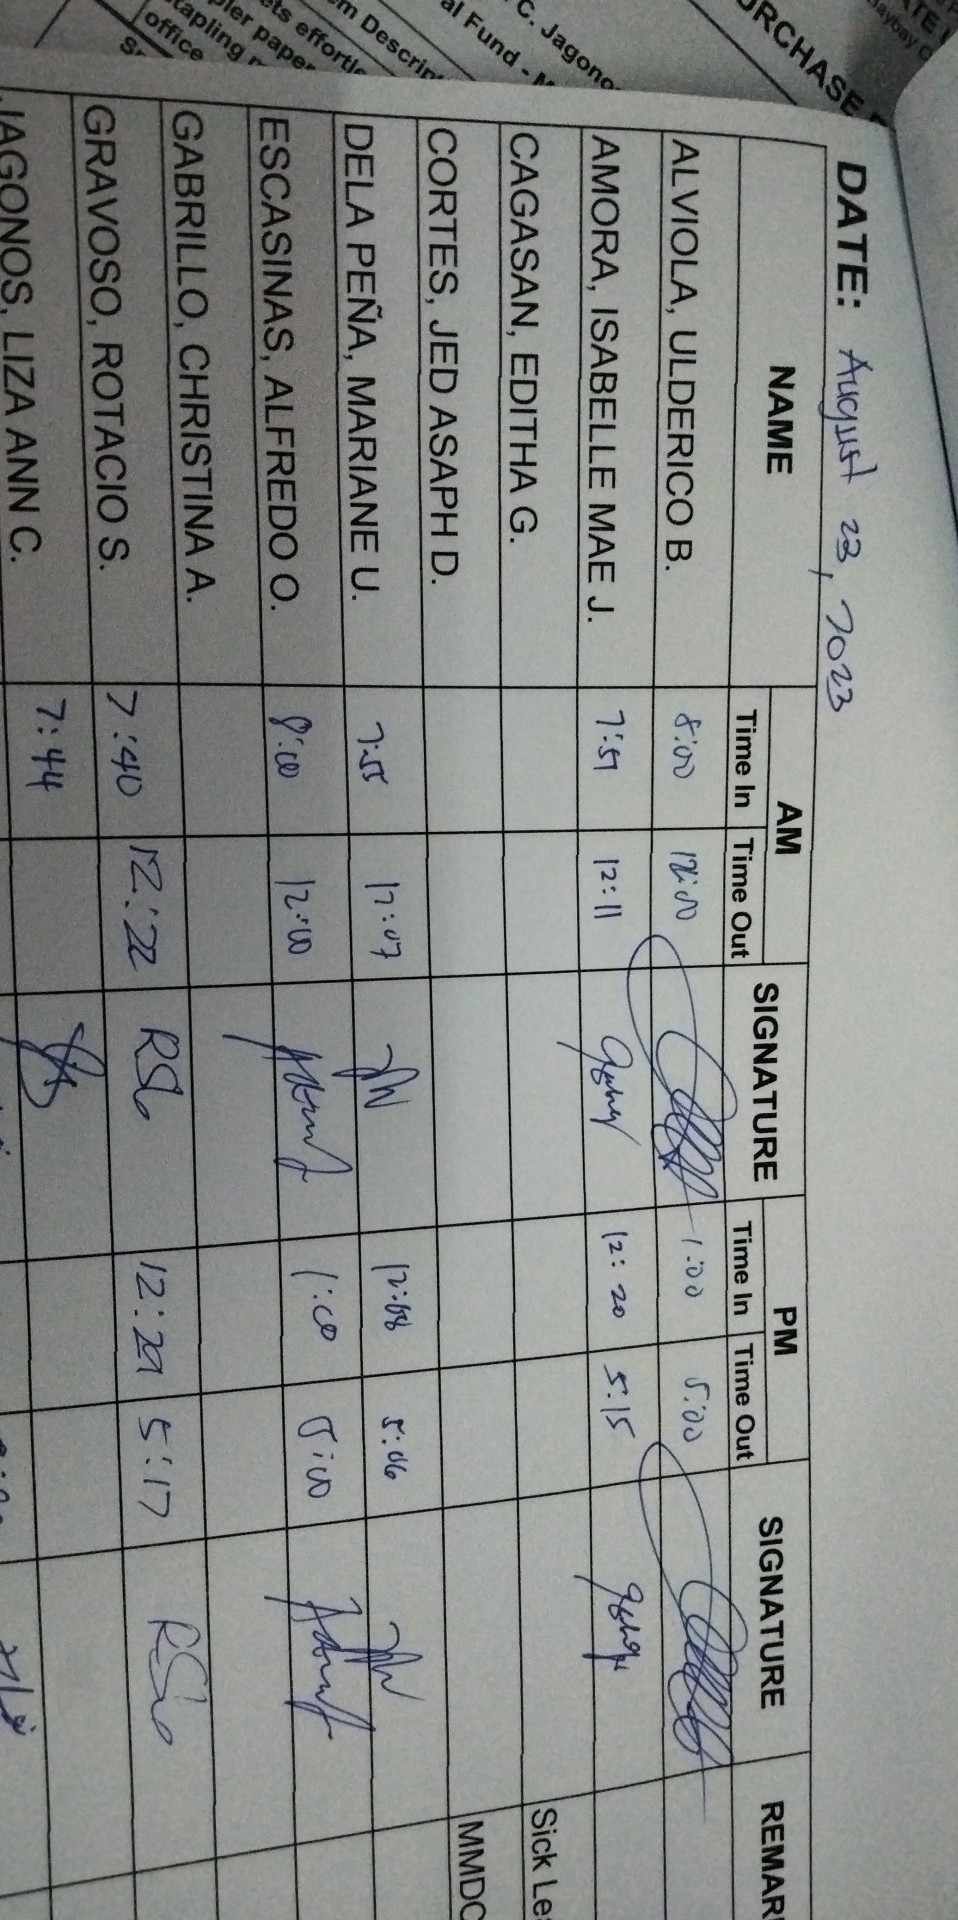 URCHASE
C. Jagono
al Fund - M
m Descrip
ets effortle
pler paper
tapling
office
DATE: August 23, 2023
NAME AM SIGNATURE PM SIGNATURE REMAR
Time In Time Out Time In Time Out
ALVIOLA, ULDERICO B. 8:00 12:00 1:00 5:00
AMORA, ISABELLE MAE J. 7:59 12:11 12:20 5:15
CAGASAN, EDITHA G. Sick Le
CORTES, JED ASAPH D. MMDC
DELA PEÑA, MARIANE U. 7:55 12:07 12:08 5:06
ESCASINAS, ALFREDO O. 8:00 12:00 1:00 5:00
GABRILLO, CHRISTINA A.
GRAVOSO, ROTACIO S. 7:40 12:22 12:29 5:17
JAGONOS, LIZA ANN C. 7:44